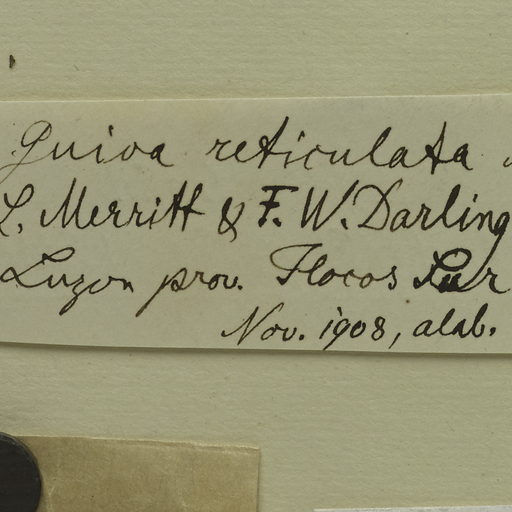 Guioa reticulata
L. Merritt & F. W. Darling
Luzon prov. Ilocos Sur
Nov. 1908, alab.